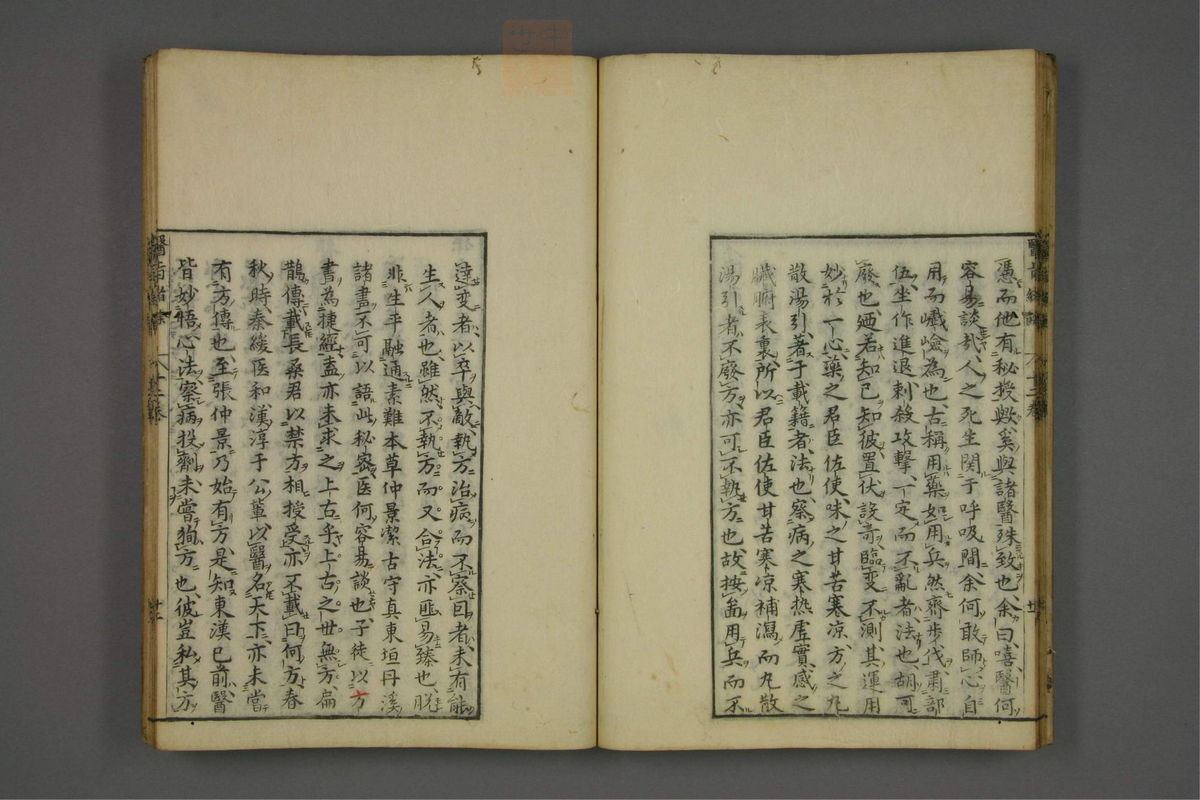 憑而他有秘授歟奚與諸醫殊致也余曰嘻醫何
容易談哉人之死生関于呼吸間余何敢師心自
用而巇嶮為也古稱用藥如用兵然齊步伐肅部
伍坐作進退刺殺攻擊一定而不亂者法也胡可
廢也廼若知己知彼置伏設奇臨變不測其運用
妙於一心藥之君臣佐使味之甘苦寒凉方之丸
散湯引著于載籍者法也察病之寒热虚實感之
臟腑表裏所以君臣佐使甘苦寒凉補瀉而丸散
湯引者不廢方亦可不執方也故按啚用兵而不
達變者以卒與敵執方治病而不察因者未有能
生人者也雖然不執方而又合法亦匪易臻也脱
非生平融通素難本草仲景潔古守真東垣丹溪
諸書不可以語此秘密医何容易談也子徒以方
書為捷經盍亦未求之上古乎上古之世無方扁
鵲傳載長桑君以禁方相授受亦不載曰何方春
秋時秦緩医和漢淳于公軰以醫名天下亦未嘗
有方傳也至張仲景乃始有方是知東漢已前醫
皆妙悟心法察病投劑未嘗狥方也彼豈私其方